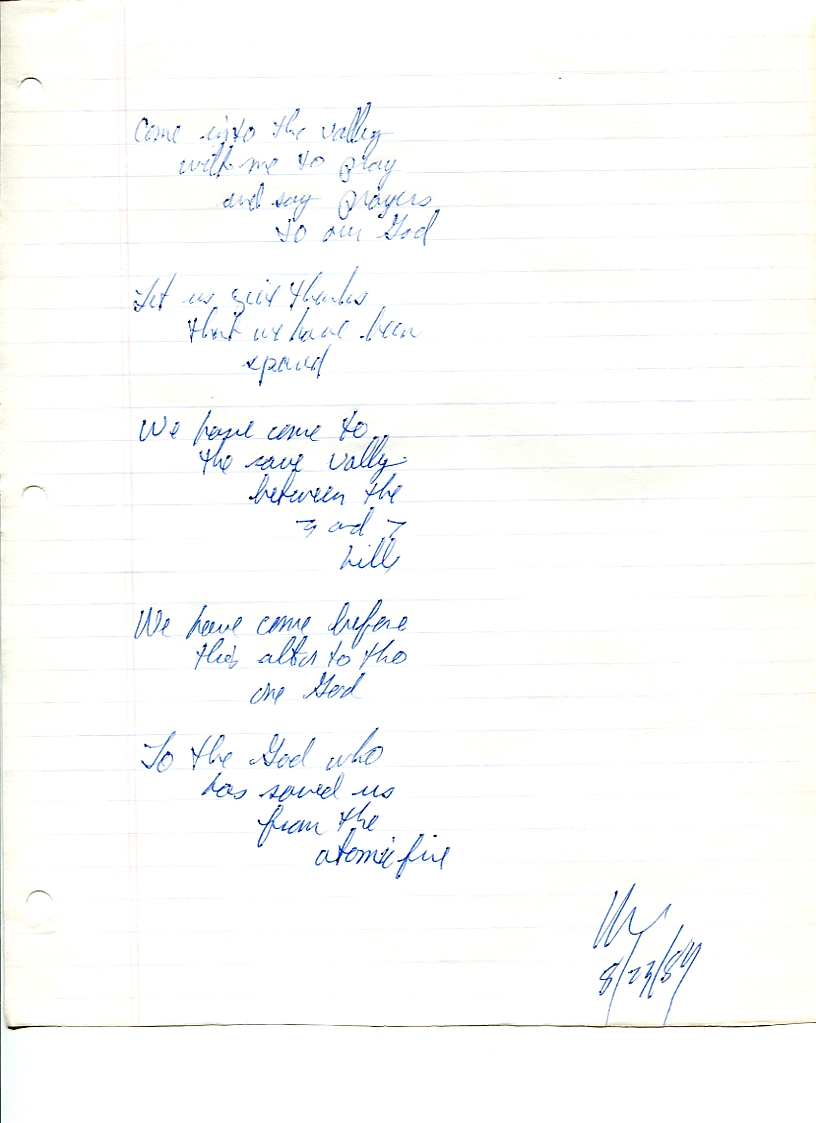 Come into the valley
with me to pray
and say prayers
to our God
Let us give thanks
that we have been
spared
We have come to
the valley
between the
and
hills
We have come before
this alter to the
one God
To the God who
has saved us
from the
atomic fire
8/23/89